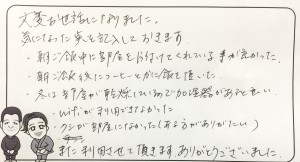 大変お世話になりました。
気になった点を記入しておきます。
・朝ご飯中に部屋を片付けてくれている事が良かった。
・朝ご飯後にコーヒーとかに飯を頂いた
・冬は部屋が乾燥しているので加湿器があると良い
・wifiが利用できてよかった
・クシが部屋になかった(ある方がありがたい)
また利用させて頂きます ありがとうございました。